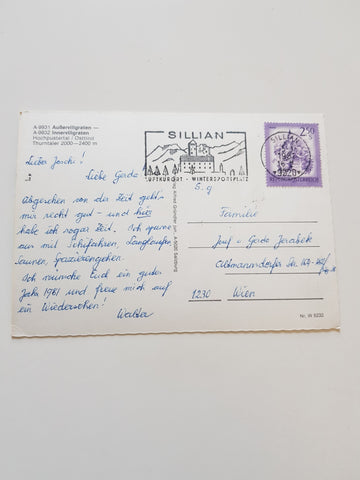 A-9931 Außervillgraten —
A-9932 Innervillgraten
Hochpustertal / Osttirol
Thurntaler 2000—2400 m
SILLIAN
LUFTKURORT - WINTERSPORTPLATZ
2.50
REPUBLIK ÖSTERREICH
SILLIAN
9920
Lieber Joschi!
Liebe Gerda
5. 9
Abgesehen von der Zeit geht-
mir recht gut - und hier
habe ich sogar Zeit. Ich spanne
aus mit Schifahren, Langlaufen,
Saunen, Spazierengehen.
Ich wünsche Euch ein gutes
Jahr 1981 und freue mich auf
ein Wiedersehen!
Walter
Familie
Josef u. Gerda Jerabek
Altmannsdorfer Str.
1230 Wien
Alfred Gründler jun. A-5026 Salzburg
Nr. W 8230